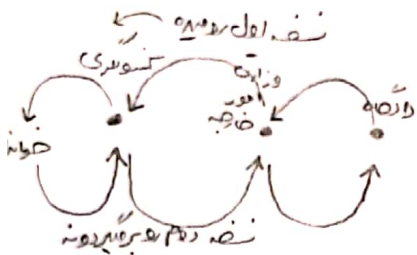 نسخه اول رو میده
کنسولگری
وزارت
امور
خارجه
دادگاه
خوانده
نسخه دوم رو برمیگردونه